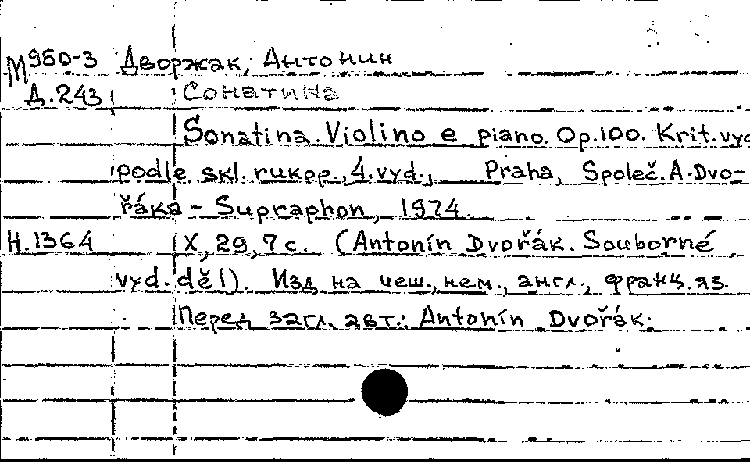 М950-3 Дворжак, Антонин
Д.243 Сонатина
Sonatina. Violino e piano. Op.100. Krit. vyd
podle skl. rukop., 4. vyd., Praha, Společ. A. Dvo-
řáka - Supraphon, 1974.
Н.1364 X, 29, 7 с. (Antonín Dvořák. Souborné
vyd. děl). Изд. на чеш., нем., англ., франц. яз.
Перед загл. авт.: Antonín Dvořák.